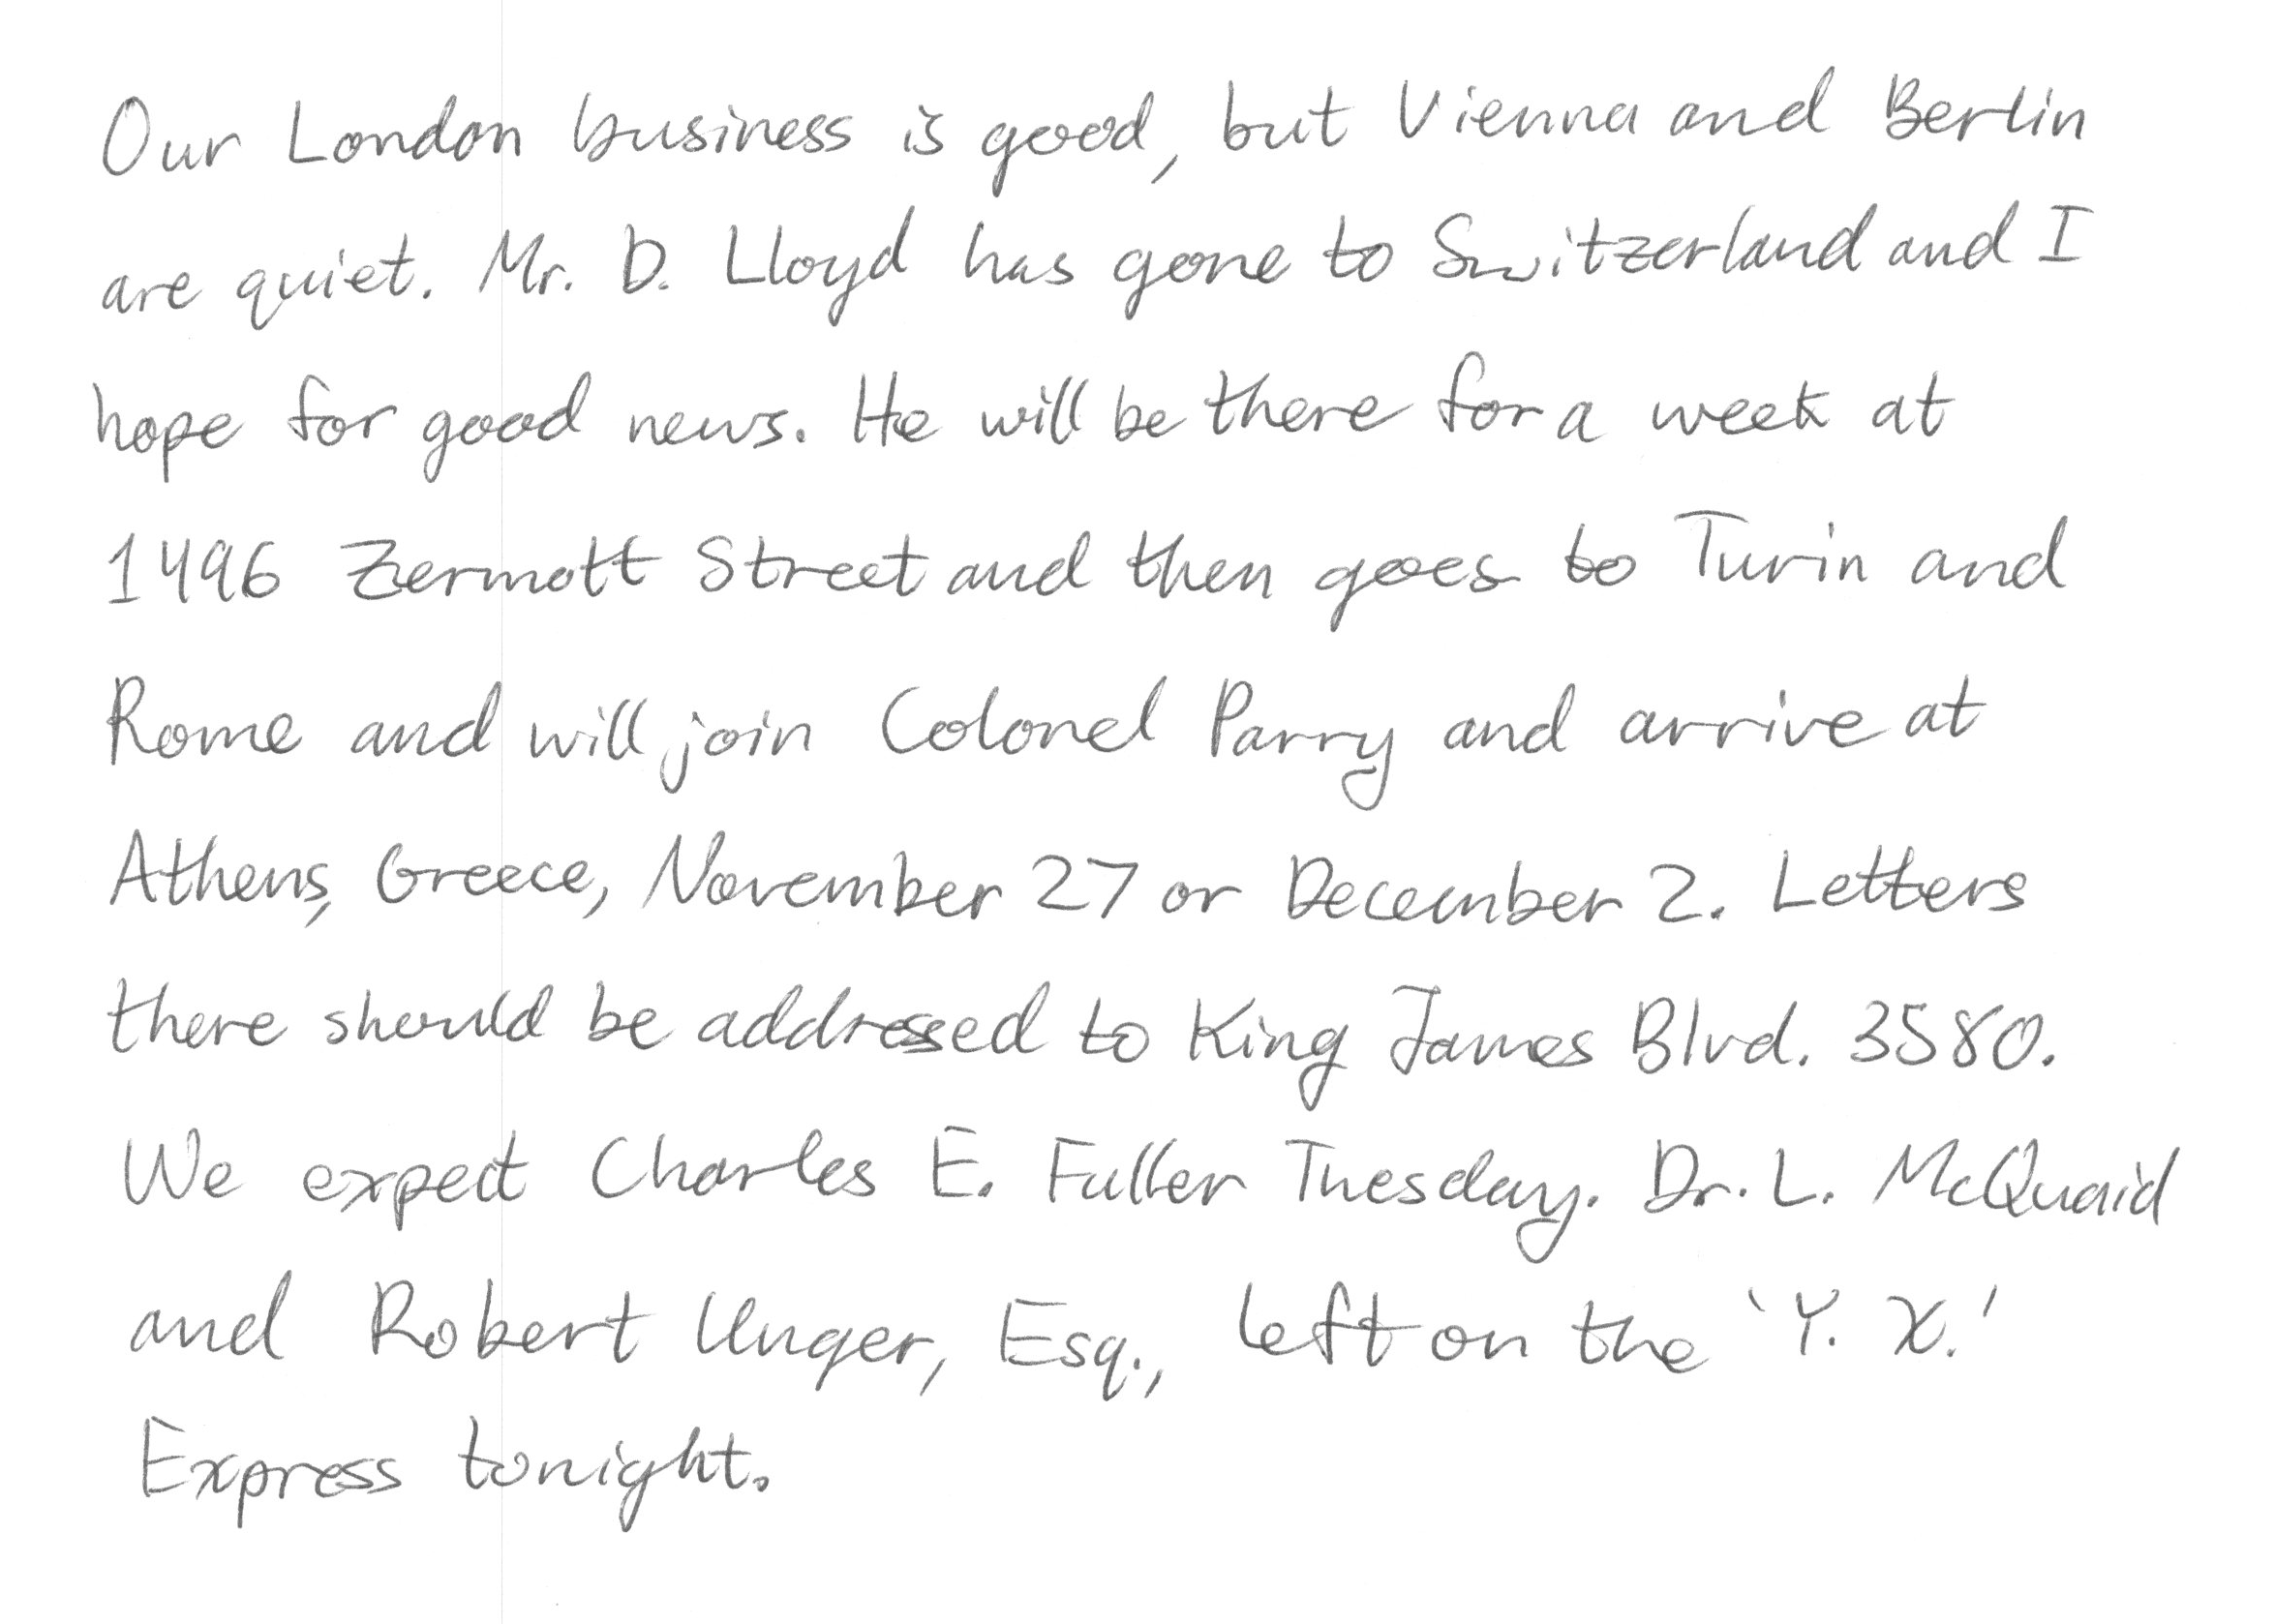 Our London business is good, but Vienna and Berlin
are quiet. Mr. D. Lloyd has gone to Switzerland and I
hope for good news. He will be there for a week at
1496 Zermott Street and then goes to Turin and
Rome and will join Colonel Parry and arrive at
Athens, Greece, November 27 or December 2. Letters
there should be addressed to King James Blvd. 3580.
We expect Charles E. Fuller Tuesday. Dr. L. McQuaid
and Robert Unger, Esq., left on the 'Y. X.'
Express tonight.